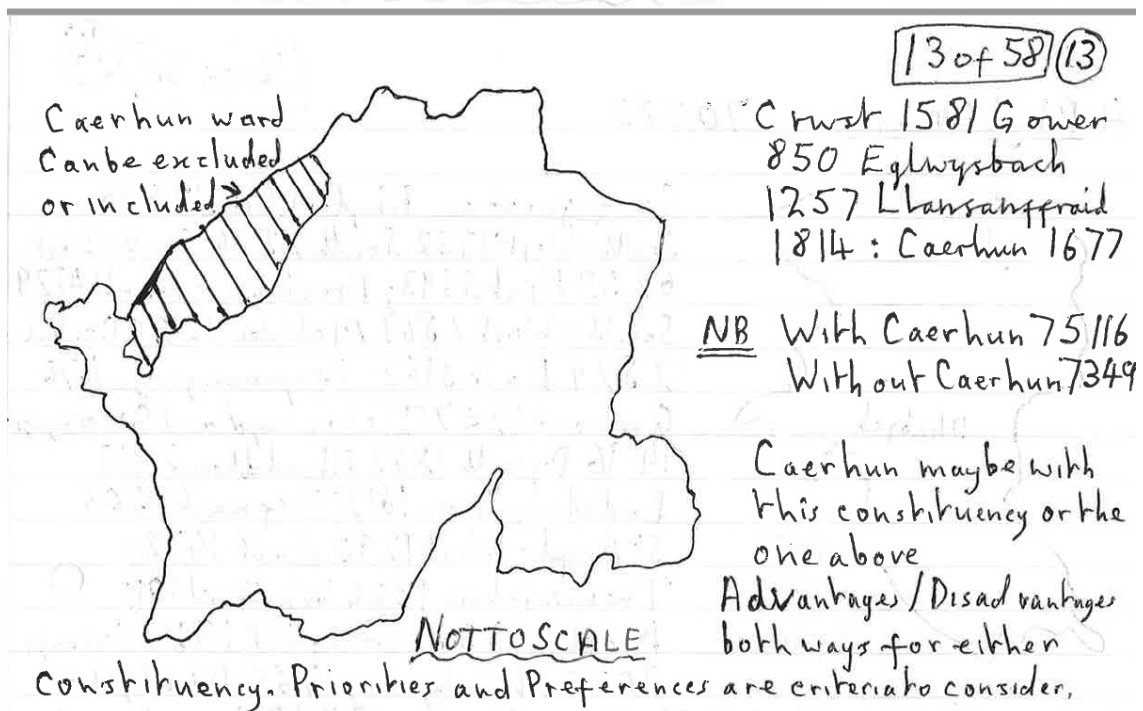 13 of 58 13
Caerhun ward
Can be excluded
or included
Crwst 1581 Gower
850 Eglwysbach
1257 Llansanffraid
1814 : Caerhun 1677
NB With Caerhun 75116
Without Caerhun 7349
Caerhun maybe with
this constituency or the
one above
Advantages/Disadvantages
both ways for either
NOT TO SCALE
constituency. Priorities and Preferences are criteria to consider.